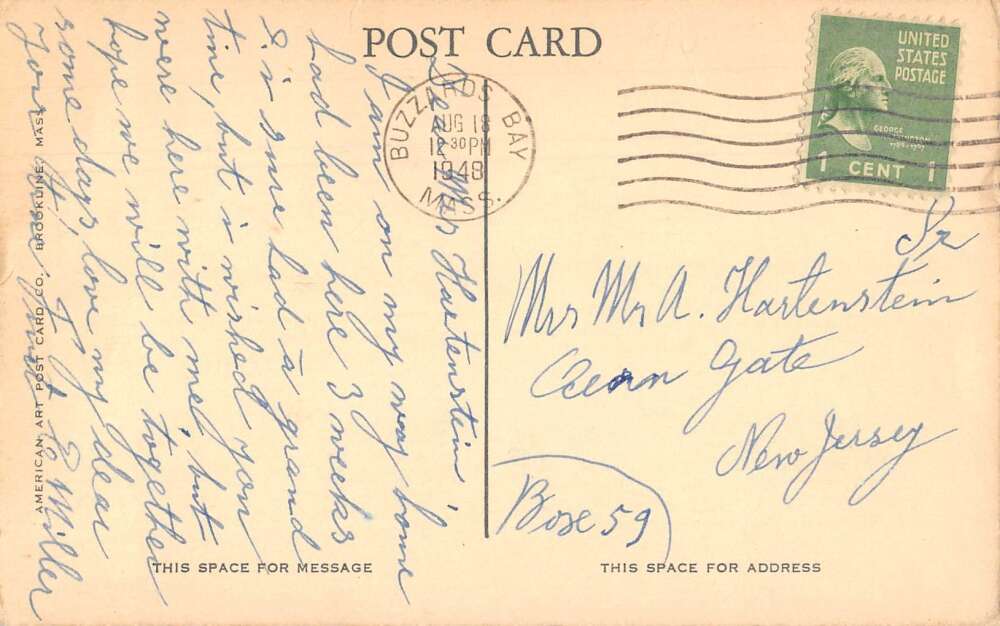 POST CARD
UNITED
STATES
POSTAGE
GEORGE
WASHINGTON
1 CENT 1
BUZZARDS BAY
AUG 18
12 30 PM
1948
MASS.
Dear Mrs Hartenstein,
I am on my way home
had been here 3 weeks
I is sure had a grand
time, but i wished you
were here with me, but
hope we will be together
some days, love my dear
Your E Miller
Sr
Mrs Mr A. Hartenstein
Ocean Gate
New Jersey
Box 59
THIS SPACE FOR MESSAGE
THIS SPACE FOR ADDRESS
AMERICAN ART POST CARD CO. BROOKLINE, MASS.